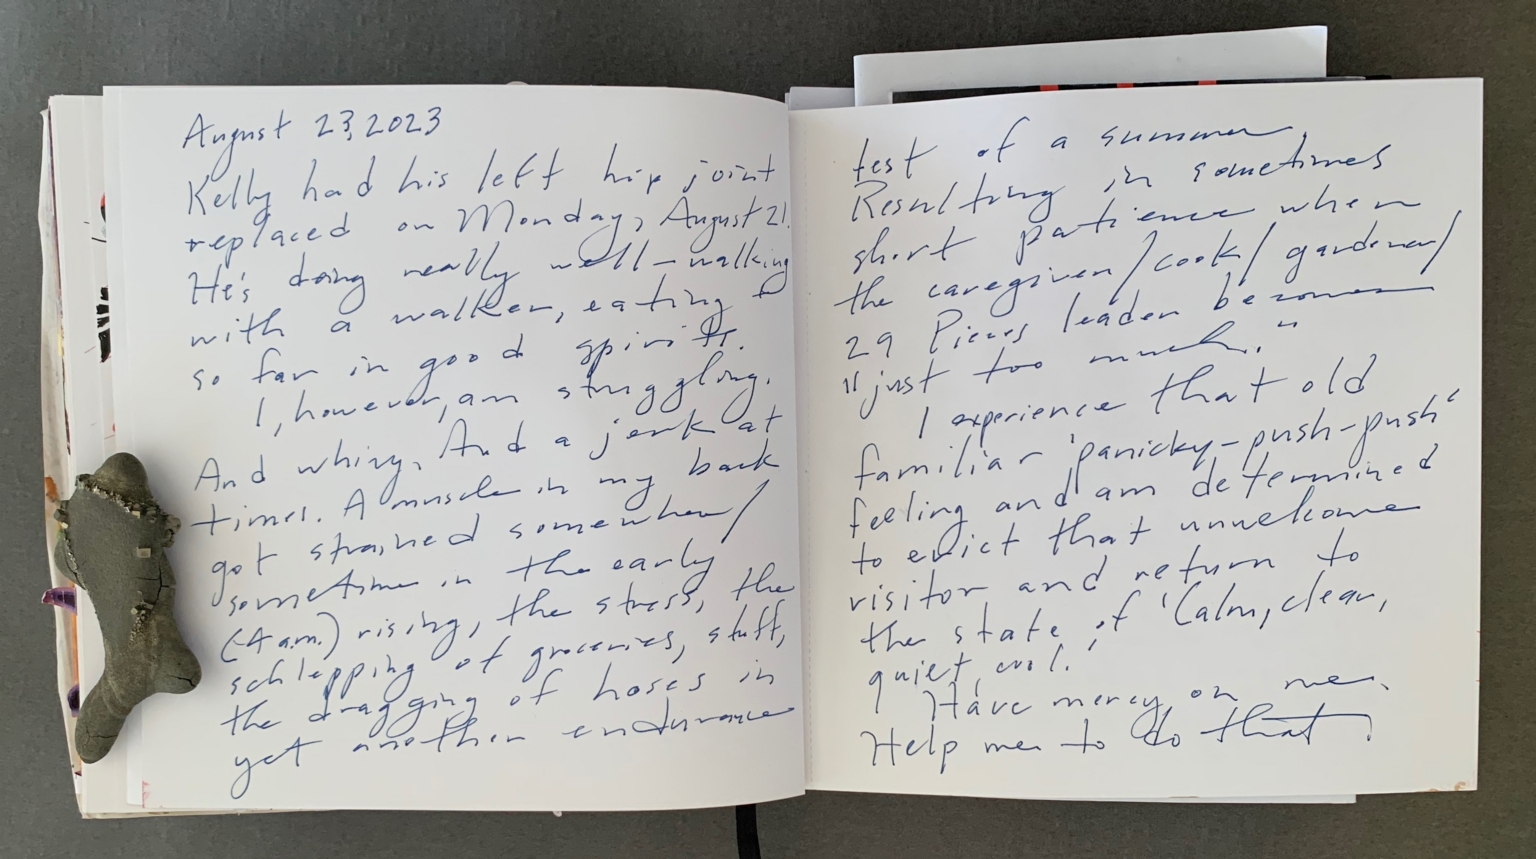 August 23, 2023
Kelly had his left hip joint
replaced on Monday, August 21.
He's doing really well – walking
with a walker, eating &
so far in good spirits.
I, however, am struggling.
And whiny. And a jerk at
times. A muscle in my back
got strained somewhere/
sometime in the early
(4 a.m.) rising, the stress, the
schlepping of groceries, stuff,
the dragging of hoses in
yet another endurance
test of a summer.
Resulting in sometimes
short patience when
the caregiver/cook/gardener/
29 Pieces leader becomes
"just too much."
I experience that old
familiar 'panicky-push-push'
feeling and am determined
to evict that unwelcome
visitor and return to
the state of 'Calm, clear,
quiet, cool.'
Have mercy on me.
Help me to do that.